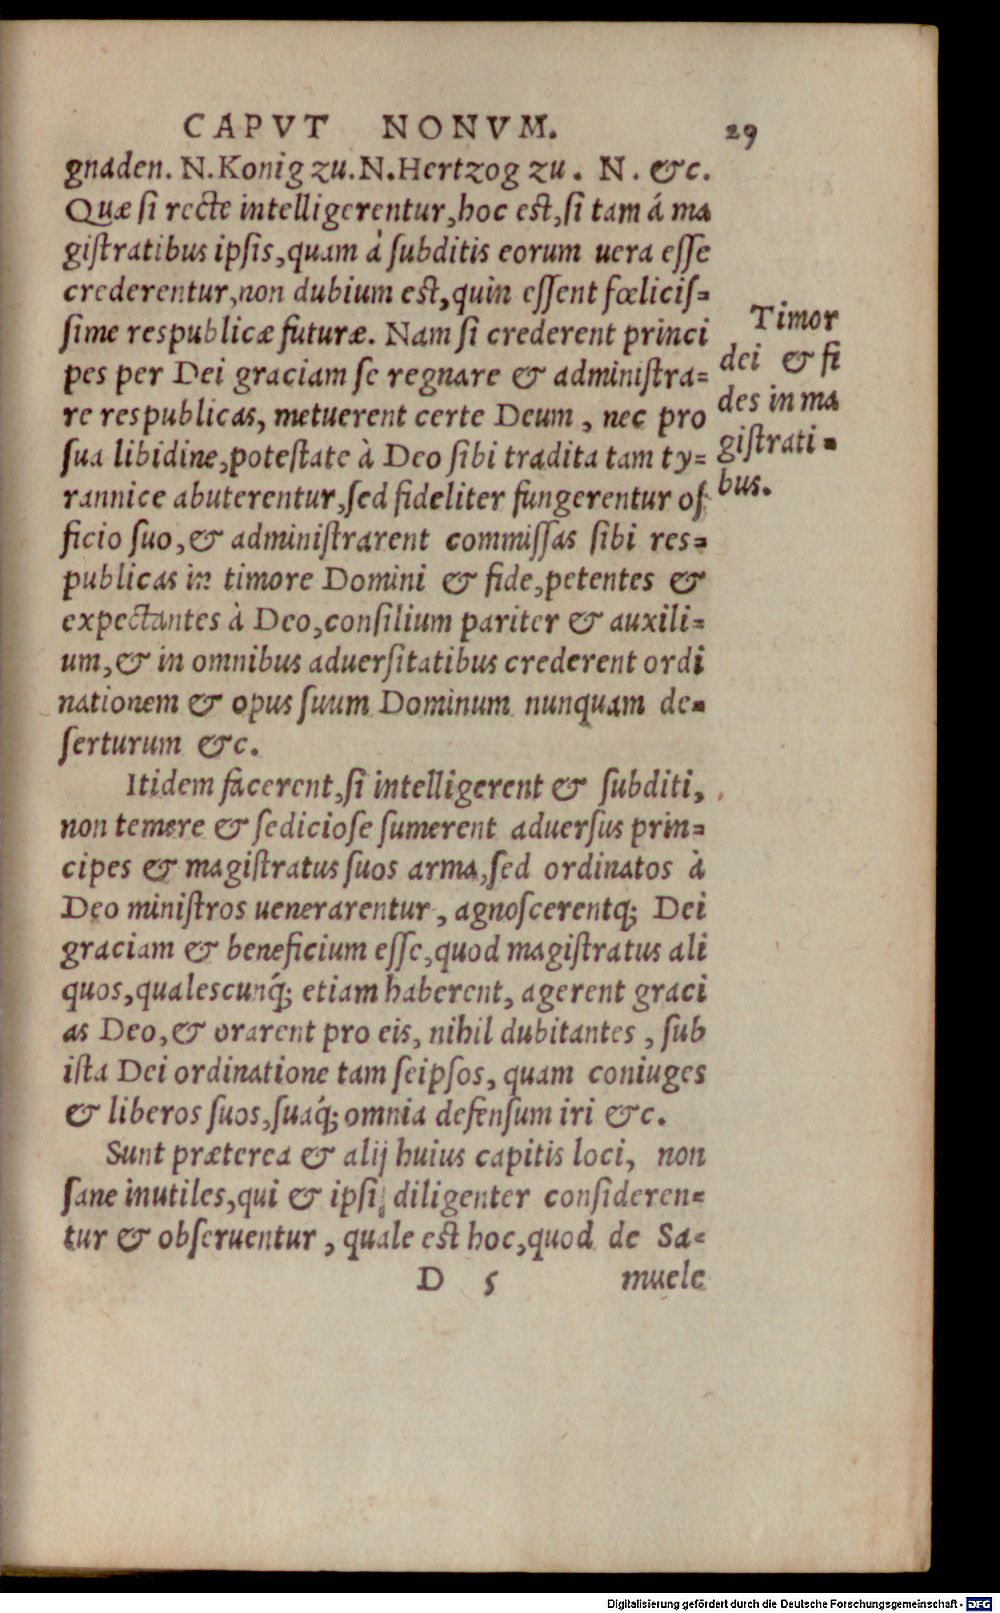 CAPVT NONVM. 29
gnaden. N. Konig zu. N. Hertzog zu. N. &c.
Quæ si recte intelligerentur, hoc est, si tam á ma
gistratibus ipsis, quam à subditis eorum uera esse
crederentur, non dubium est, quin essent fœlicis=
sime respublicæ futuræ. Nam si crederent princi
pes per Dei graciam se regnare & administra=
re respublicas, metuerent certe Deum, nec pro
sua libidine, potestate à Deo sibi tradita tam ty=
rannice abuterentur, sed fideliter fungerentur of
ficio suo, & administrarent commissas sibi res=
publicas in timore Domini & fide, petentes &
expectantes à Deo, consilium pariter & auxili=
um, & in omnibus aduersitatibus crederent ordi
nationem & opus suum Dominum nunquam de=
serturum &c.
Timor
dei & fi
des in ma
gistrati=
bus.
Itidem facerent, si intelligerent & subditi,
non temere & sediciose sumerent aduersus prin=
cipes & magistratus suos arma, sed ordinatos à
Deo ministros uenerarentur, agnoscerentq́; Dei
graciam & beneficium esse, quod magistratus ali
quos, qualescunq́; etiam haberent, agerent graci
as Deo, & orarent pro eis, nihil dubitantes, sub
ista Dei ordinatione tam seipsos, quam coniuges
& liberos suos, suaq́; omnia defensum iri &c.
Sunt præterea & alij huius capitis loci, non
sane inutiles, qui & ipsi diligenter consideren=
tur & obseruentur, quale est hoc, quod de Sa=
D 5 muele
Digitalisierung gefördert durch die Deutsche Forschungsgemeinschaft - DFG